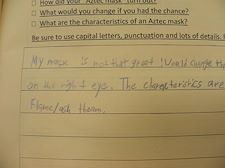 □ How did your "Aztec mask" turn out?
□ What would you change if you had the chance?
□ What are the characteristics of an Aztec mask?
Be sure to use capital letters, punctuation and lots of details.
My mask is not that great I Would change the
on the right eye. The characteristics are